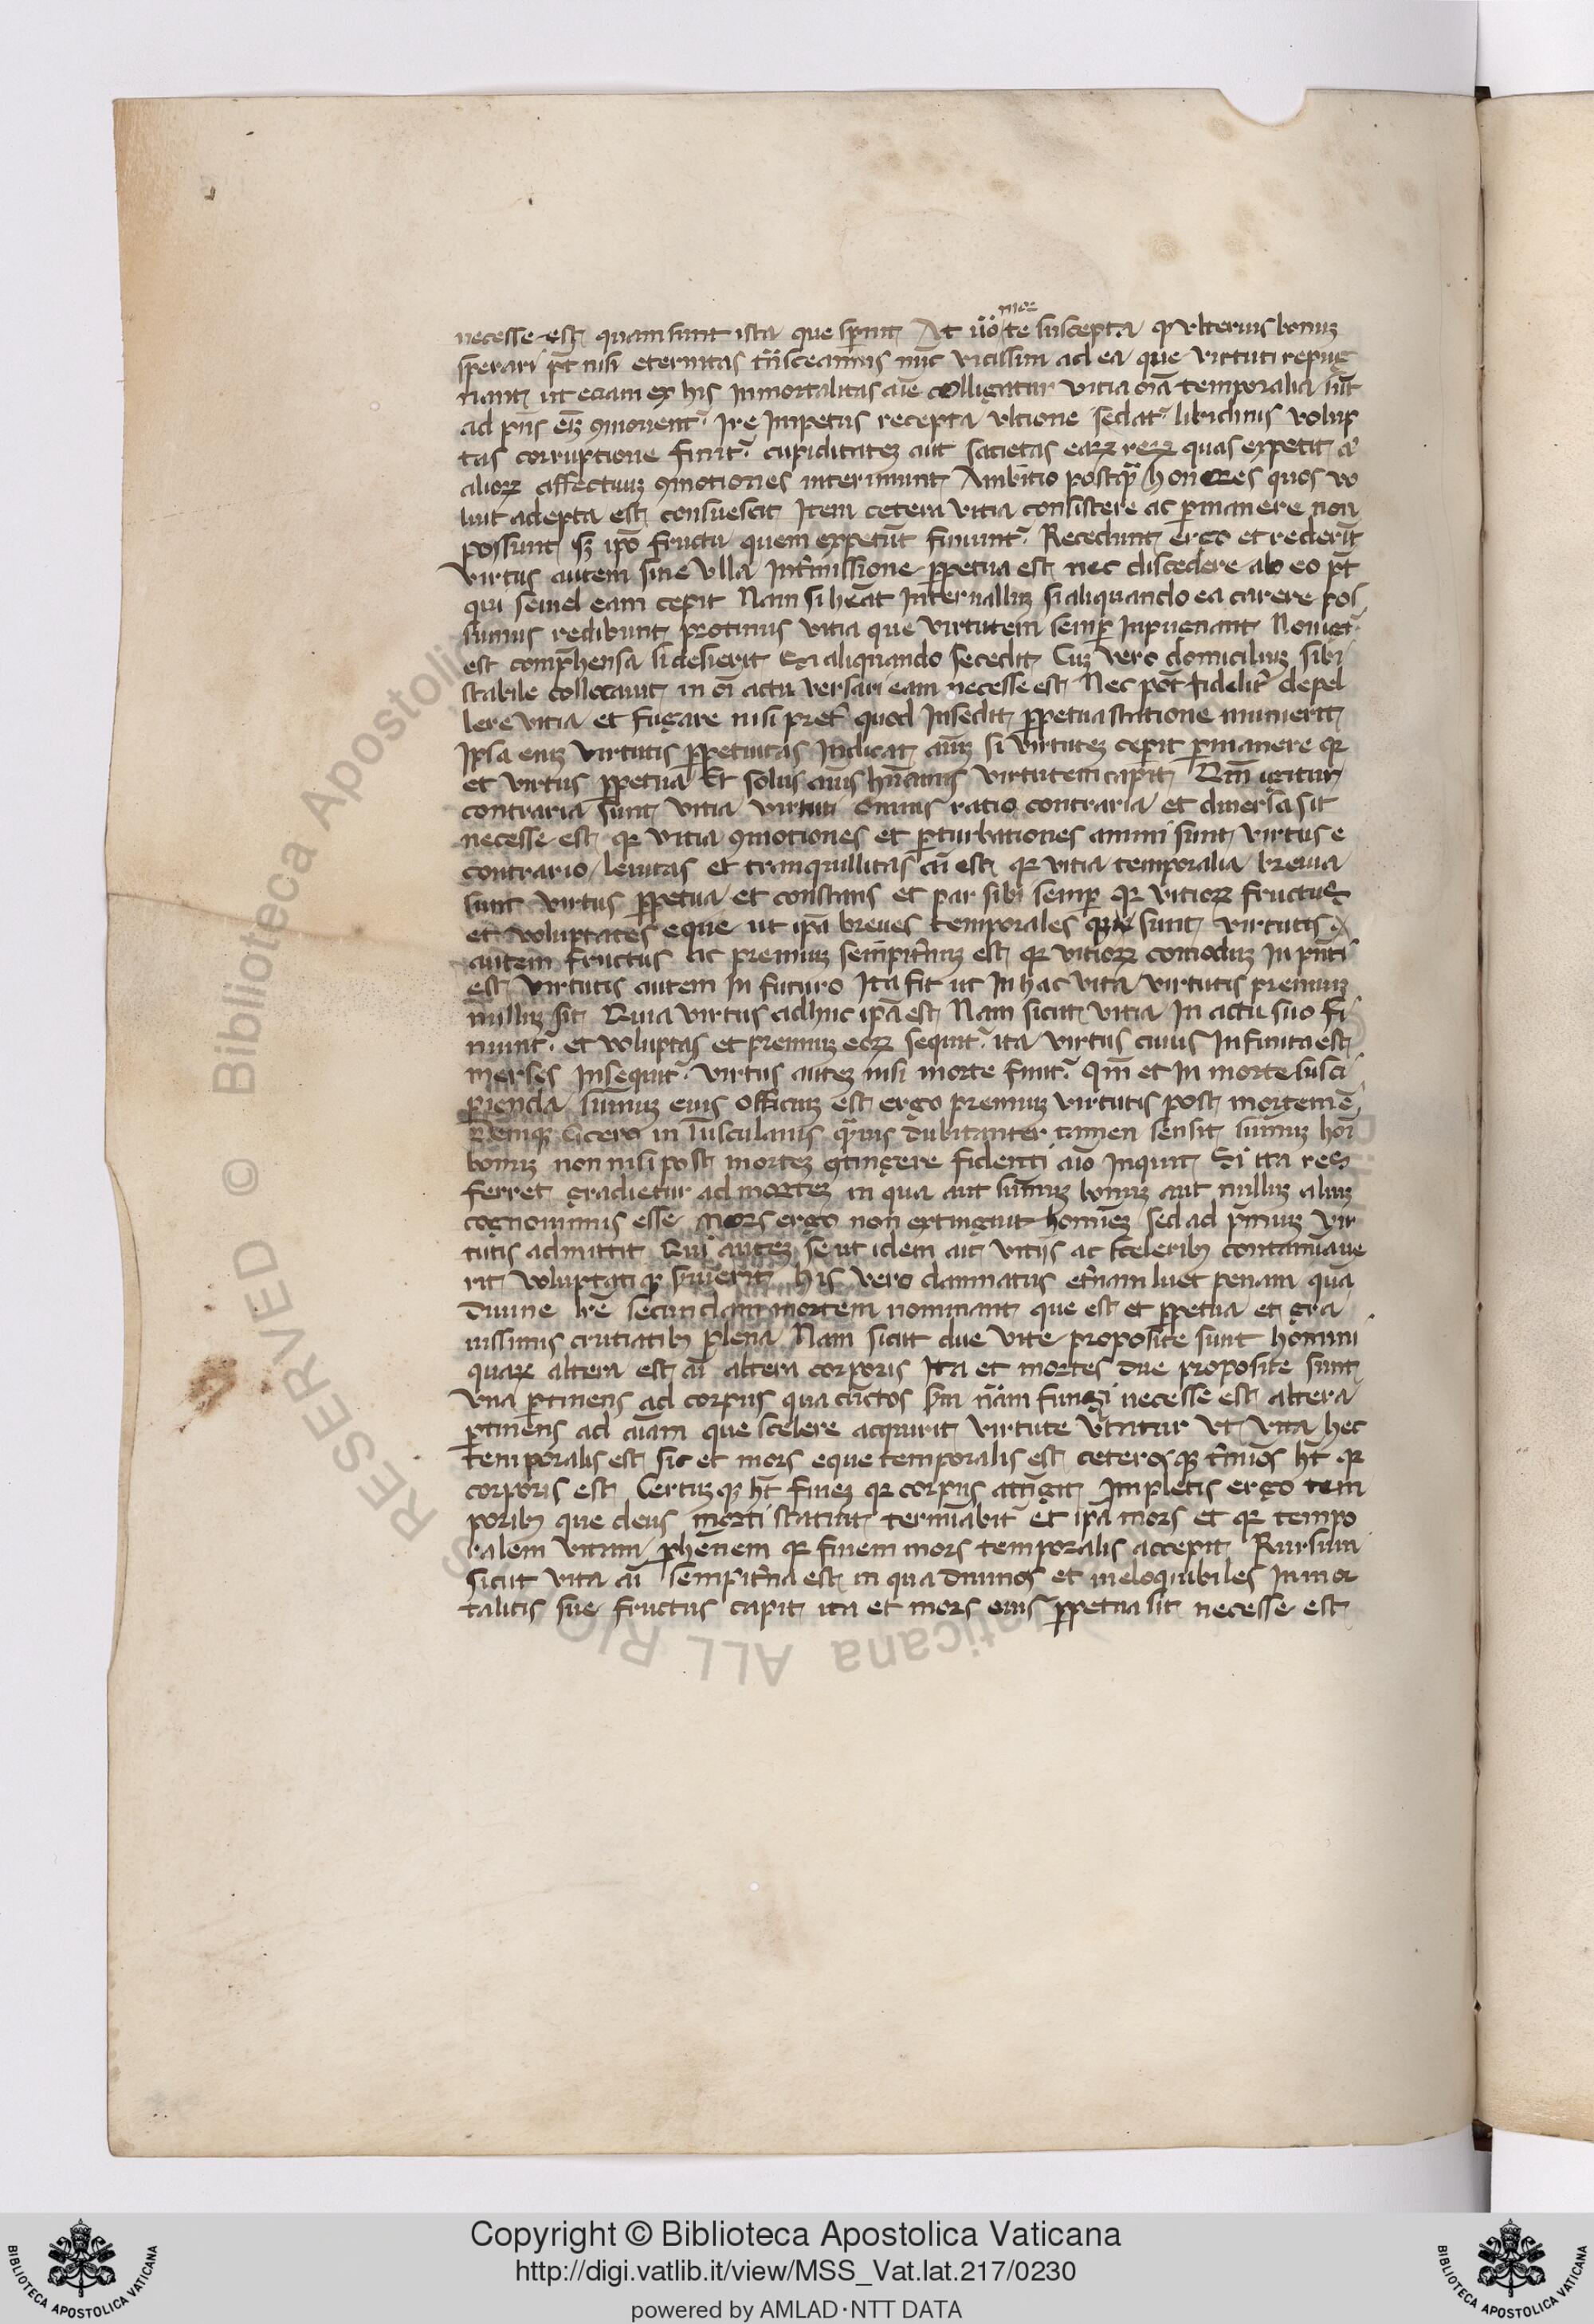 necesse est quam sunt ista que spernit At ūo mor te suscepta q ulterius bonuz
sperari pt nisi eternitas trāsceamus nūc vicissim ad ea que virtuti repug
nant ut etiam ex his inmortalitas aīe colligatur vitia oīa temporalia sūt
ad pūs eīz 9mouent Ire impetus recepta ultione sedat libidinis volup
tas corruptione finit cupiditatez aut satietas eaꝝ reꝝ quas expetit a
alioꝝ affectuuz 9motiones interimunt Ambitio postq̄ honores quos vo
luit adepta est consuescit Item cetera vitia consistere ac pmanere non
possunt sz ipo fructu quem expetūt finiunt Recedunt ergo et rederūt
virtus autem sine ulla intmissione ppetua est nec discedere ab eo pt
qui semel eam cepit Nam si heat interualluz si aliquando ea carere pos
sumus redibunt protinus vitia que virtutem semp inpugnant Non igr
est comphensa si deserit si aliquando secedit Cuz vero domiciliuz sibi
stabile collocauit in oī actu versari eam necesse est Nec pot fidelit depel
lere vitia et fugare nisi pret quod insedit ppetua statione munierit
Ipsa eniz virtutis ppetuitas indicat aīuz si virtutez cepit pmanere qr
et virtus ppetua Et solus aīus humanus virtutem capit Qm̄ igitur
contraria sunt vitia virtuti omnis ratio contraria et diuersa sit
necesse est qr vitia 9motiones et pturbationes animi sunt virtus e
contrario lenitas et tranquillitas aī est qr vitia temporalia breuia
sunt virtus ppetua et constans et par sibi semp qr vitioꝝ fructus
et voluptates eque ut ipa breues temporales q sunt virtutis
autem fructus ac premiuz sempitnuz est qr vitioꝝ comoduz in pnti
est virtutis autem in futuro Ita fit ut in hac vita virtutis premiuz
nulluz sit Quia virtus adhuc ipa est Nam sicut vitia in actu suo fi
niunt et voluptas et premiuz eoꝝ sequit ita virtus cuius infinita est
merses insequit virtus autez nisi morte finit Qm̄ et in morte susci
pienda summuz eius officiuz est ergo premiuz virtutis post mortem ē
Deniqz Cicero in Tusculanis quis dubitanter tamen sensit summuz hoī
bonuz non nisi post mortez 9tingere fidenti aīo inquit Si ita res
ferret gradietur ad mortez in qua aut summuz bonuz aut nulluz aliuz
cognouimus esse Mors ergo non extinguit hominez sed ad pmiuz vir
tutis admittit Qui autez se ut idem ait vitijs ac sceleribus contaminaue
rit voluptati qz seruierit his vero damnatus etnam luet penam quā
diuine lre secundam mortem nominant que est et ppetua et gra
uissimis crutiatibus plena Nam sicut due vite proposite sunt homini
quaꝝ altera est aī altera corporis Ita et mortes due proposite sunt
una ptinens ad corpus qua cūctos sm nām fungi necesse est altera
ptinens ad aīam que scelere acquirit virtute vitatur ut vita hec
temporalis est sic et mors eque temporalis est ceteros qz tmīos ht qr
corporis est Certuz qz ht finez qr corpus attīgit Impletis ergo tem
poribus que deus morti statuit terminabit et ipa mors et qr tempo
ralem vitam phennem qr finem mors temporalis accepit Rursum
sicut vita aī sempitna est in qua diuinos et ineloquibiles inmor
talitis sue fructus capit ita et mors eius ppetua sit necesse est
Copyright © Biblioteca Apostolica Vaticana
http://digi.vatlib.it/view/MSS_Vat.lat.217/0230
powered by AMLAD·NTT DATA